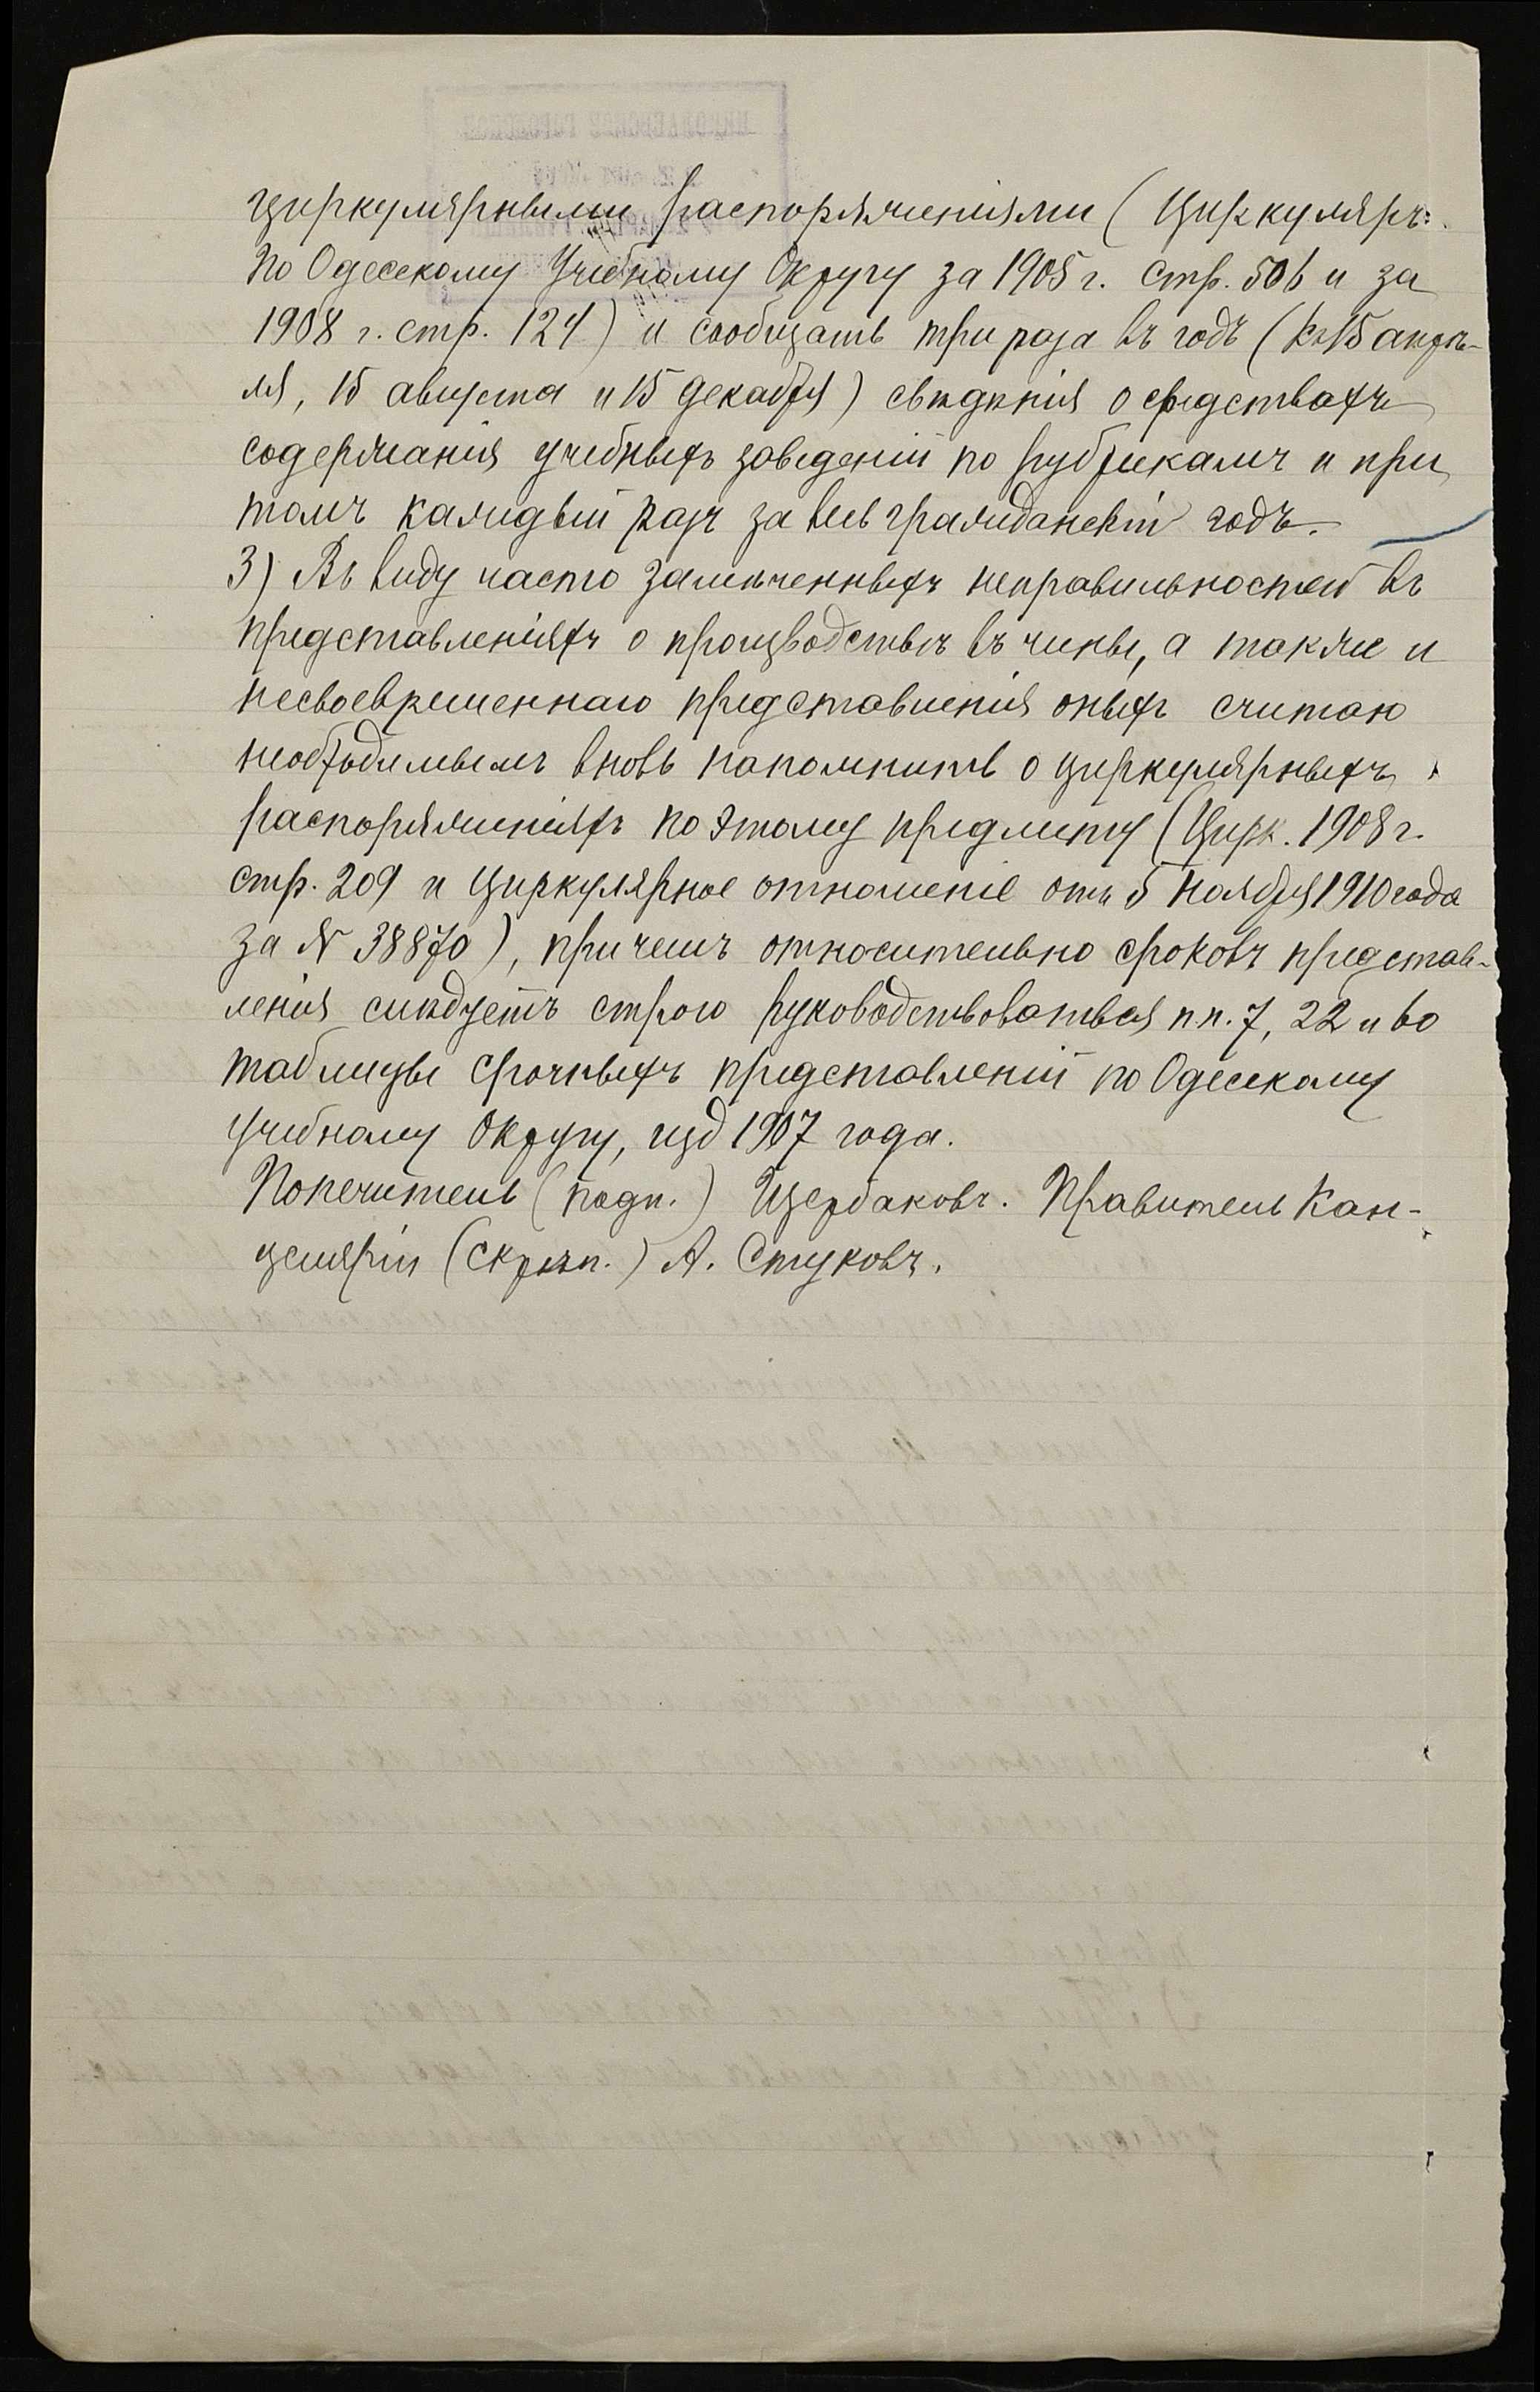 циркулярными распоряженіями (Циркуляръ:
по Одесскому Учебному Округу за 1905 г. стр. 506 и за
1908 г. стр. 124) и сообщать три раза въ годъ (къ 15 апрѣ-
ля, 15 августа и 15 декабря) свѣдѣнія о средствахъ
содержанія учебныхъ заведеній по рубрикамъ и при
томъ каждый разъ за весь гражданскій годъ.
3) Въ виду часто замѣченныхъ неправильностей въ
представленіяхъ о производствѣ въ чины, а также и
несвоевременнаго представленія оныхъ считаю
необходимымъ вновь напомнить о циркулярныхъ
распоряженіяхъ по этому предмету (Цирк. 1908 г.
стр. 209 и Циркулярное отношеніе отъ 5 Ноября 1910 года
за № 38870), при чемъ относительно сроковъ представ-
ленія слѣдуетъ строго руководствоваться п.п. 7, 22 и 60
таблицы срочныхъ представленій по Одесскому
учебному Округу, изд 1907 года.
Попечитель (подп.) Щербаковъ. Правитель Кан-
целяріи (скрѣп.) А. Стуковъ.